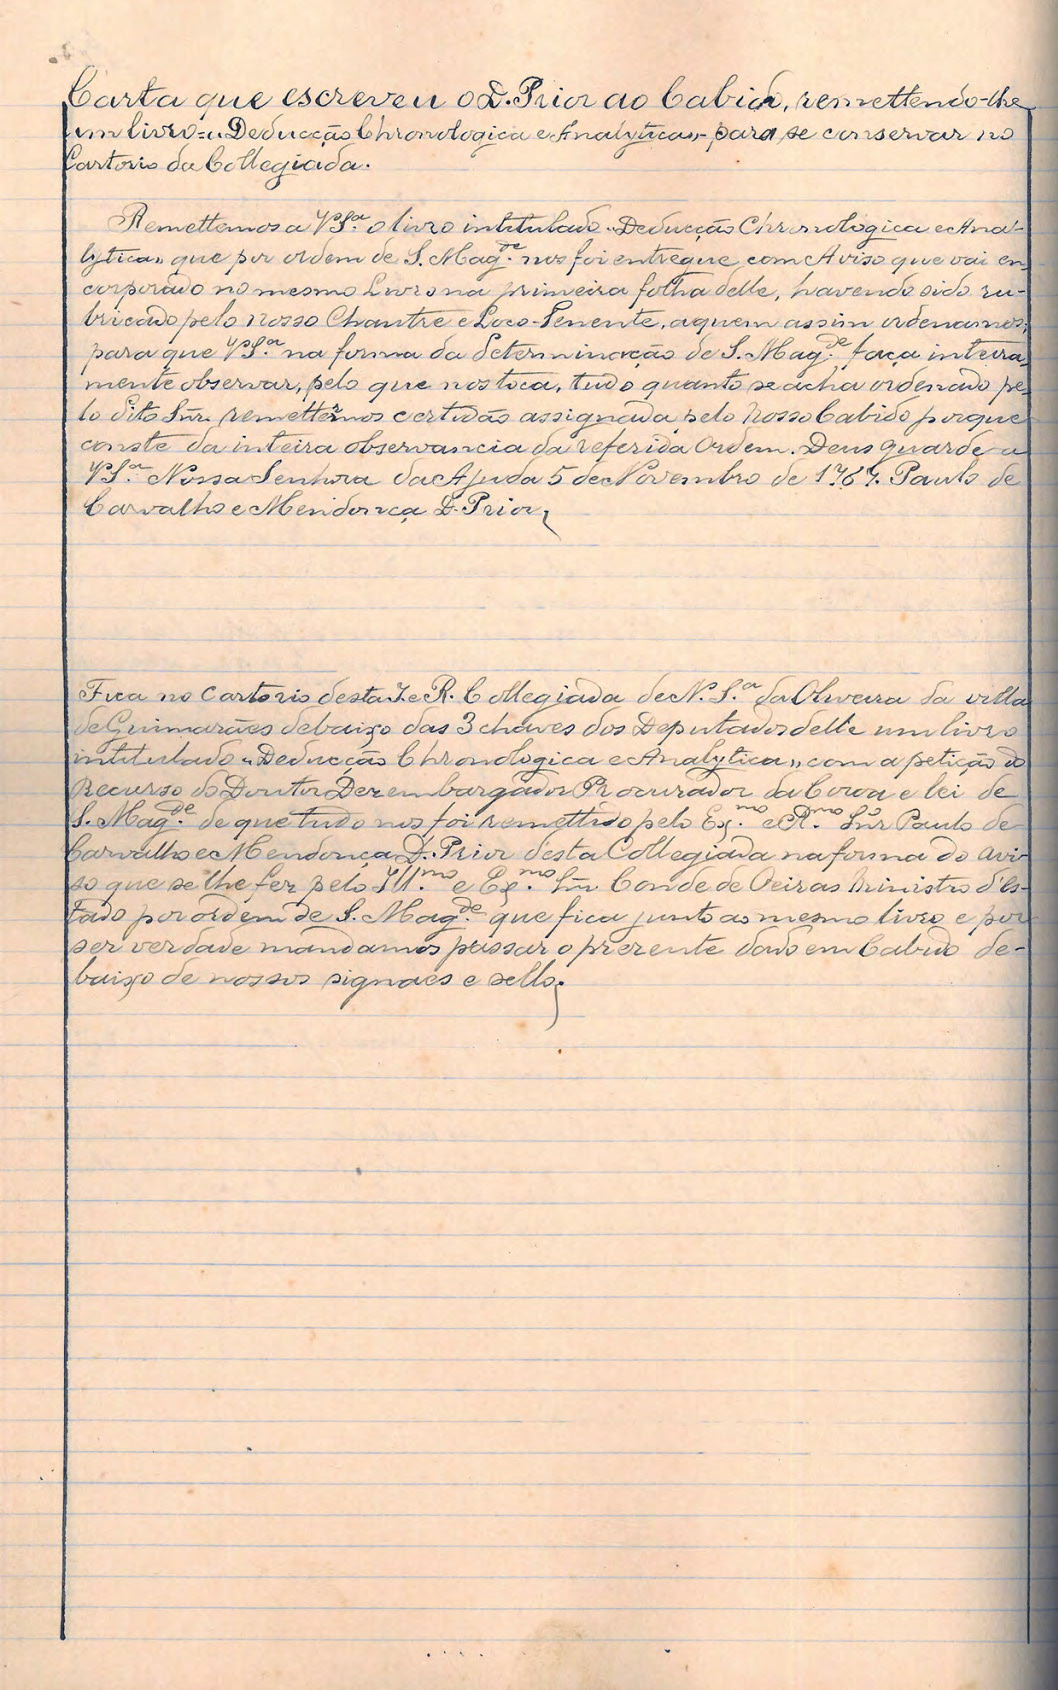 Carta que escreveu o D. Prior ao Cabido, remettendo-lhe
um livro = „Deducção Chronologica e Analytica„ – para se conservar no
Cartorio da Collegiada.
Remettemos a VS.ª o livro intitulado „Deducção Chronologica e Ana-
lytica„ que por ordem de S. Mag.de nos foi entregue com Aviso que vai en-
corporado no mesmo Livro na primeira folha delle, havendo sido ru-
bricado pelo nosso Chantre e Loco-Tenente, a quem assim ordenamos,
para que VS.ª na forma da determinação de S. Mag.de faça inteira
mente observar, pelo que nos toca, tudo quanto se acha ordenado pe-
lo dito Snr. remettermos certidão assignada pelo nosso Cabido porque
conste da inteira observancia da referida Ordem. Deus guarde a
VS.ª Nossa Senhora da Ajuda 5 de Novembro de 1767. Paulo de
Carvalho e Mendonça D. Prior
Fica no Cartorio desta I. e R. Collegiada de N. S.ª da Oliveira da villa
de Guimarães debaixo das 3 chaves dos Deputados delle um livro
intitulado „Deducção Chronologica e Analytica„ com a petição do
Recurso do Doutor Dezembargador Procurador da Coroa e lei de
S. Mag.de de que tudo nos foi remettido pelo Ex.mo e R.mo Snr Paulo de
Carvalho e Mendonça D. Prior desta Collegiada na forma do avi-
so que se lhe fez pelo Ill.mo e Ex.mo Snr Conde de Oeiras Ministro d'Es-
tado por ordem de S. Mag.de que fica junto ao mesmo livro e por
ser verdade mandamos passar o prezente dado em Cabido de-
baixo de nossos signaes e sello.